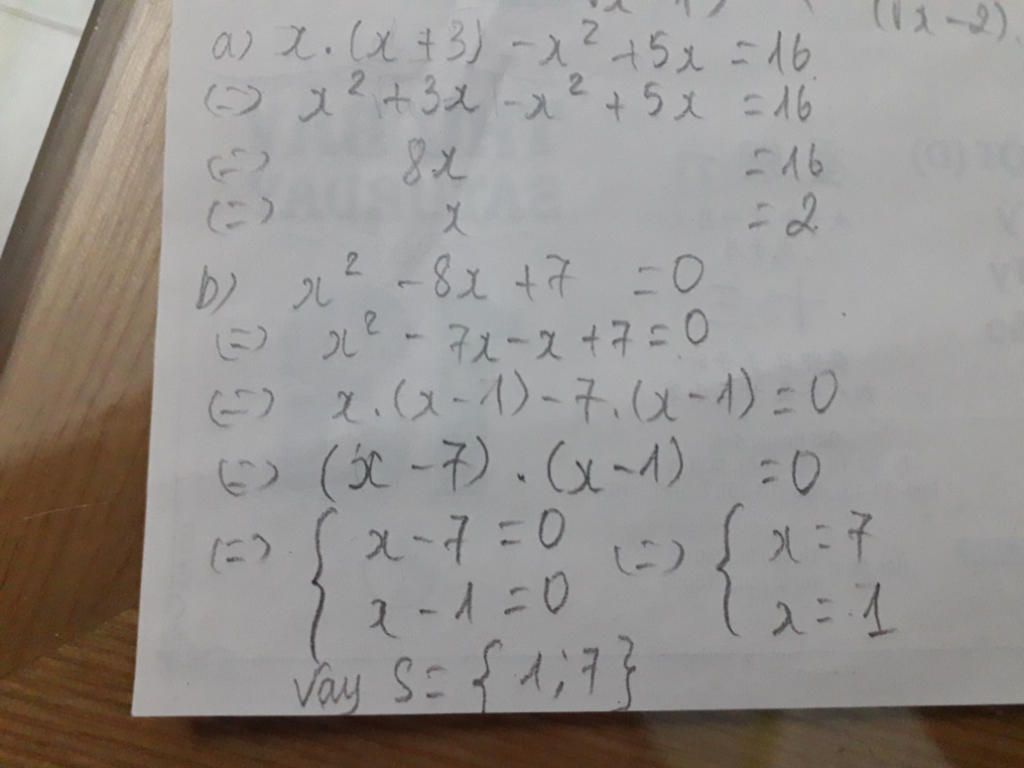 (√x-2).
a) x.(x+3) -x² +5x =16
(=) x² +3x -x² +5x =16
(=) 8x =16
(=) x =2
b) x² -8x +7 =0
(=) x² - 7x - x +7 = 0
(=) x.(x-1) - 7.(x-1) = 0
(=) (x-7) . (x-1) =0
(=) { x-7 = 0 (=) { x = 7
x - 1 = 0 x = 1
Vay S = { 1; 7 }